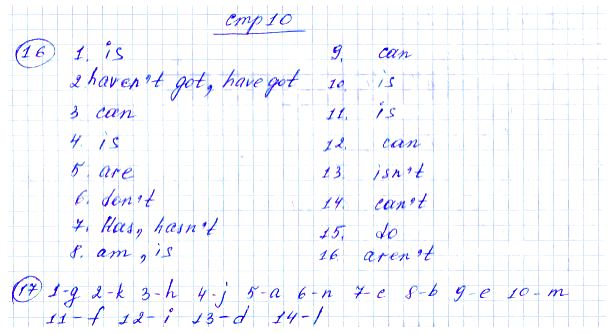 стр 10
16 1. is
2 haven't got, have got
3 can
4. is
5. are
6. don't
7. Has, hasn't
8. am, is
9. can
10. is
11. is
12. can
13. isn't
14. can't
15. do
16. aren't
17 1-g 2-k 3-h 4-j 5-a 6-n 7-c 8-b 9-e 10-m
11-f 12-i 13-d 14-l